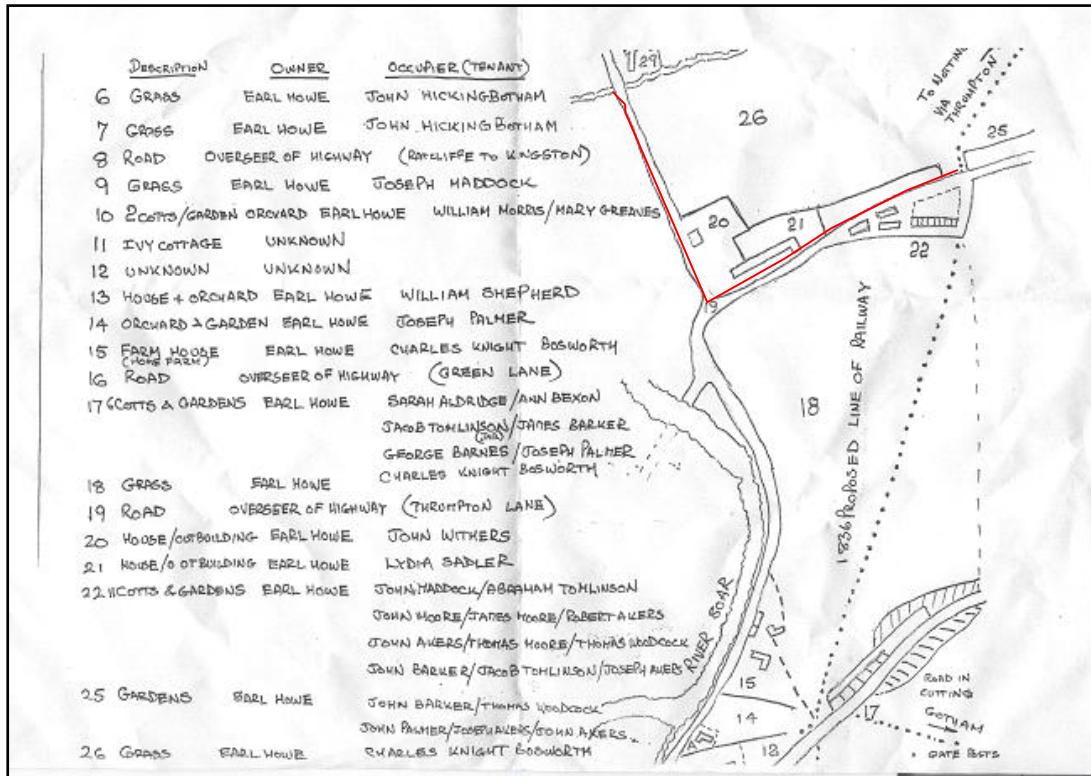 DESCRIPTION OWNER OCCUPIER (TENANT)
6 GRASS EARL HOWE JOHN HICKINGBOTHAM
7 GRASS EARL HOWE JOHN HICKINGBOTHAM
8 ROAD OVERSEER OF HIGHWAY (RATCLIFFE TO KINGSTON)
9 GRASS EARL HOWE JOSEPH MADDOCK
10 2 COTTS/GARDEN ORCVARD EARL HOWE WILLIAM MORRIS/MARY GREAVES
11 IVY COTTAGE UNKNOWN
12 UNKNOWN UNKNOWN
13 HOUSE + ORCHARD EARL HOWE WILLIAM SHEPHERD
14 ORCHARD & GARDEN EARL HOWE JOSEPH PALMER
15 FARM HOUSE EARL HOWE CHARLES KNIGHT BOSWORTH
(HOME FARM)
16 ROAD OVERSEER OF HIGHWAY (GREEN LANE)
17 6 COTTS & GARDENS EARL HOWE SARAH ALDRIDGE/ANN BEXON
JACOB TOMLINSON/JAMES BARKER
GEORGE BARNES/JOSEPH PALMER
CHARLES KNIGHT BOSWORTH
18 GRASS EARL HOWE
19 ROAD OVERSEER OF HIGHWAY (THRUMPTON LANE)
20 HOUSE/OUTBUILDING EARL HOWE JOHN WITHERS
21 HOUSE/OOTBUILDING EARL HOWE LYDIA SADLER
22 11 COTTS & GARDENS EARL HOWE JOHN MADDOCK/ABRAHAM TOMLINSON
JOHN MOORE/JAMES MOORE/ROBERT AKERS
JOHN AKERS/THOMAS MOORE/THOMAS WOODCOCK
JOHN BARKER/JACOB TOMLINSON/JOSEPH AKERS
25 GARDENS EARL HOWE JOHN BARKER/THOMAS WOODCOCK
JOHN PALMER/JOSEPH AKERS/JOHN AKERS
26 GRASS EARL HOWE CHARLES KNIGHT BOSWORTH
29
26
TO NOTTING
VIA
THRUMPTON
25
20
21
22
19
18
1836 PROPOSED LINE OF RAILWAY
RIVER SOAR
15
14
13
17
ROAD IN
CUTTING
GOTHAM
GATE POSTS